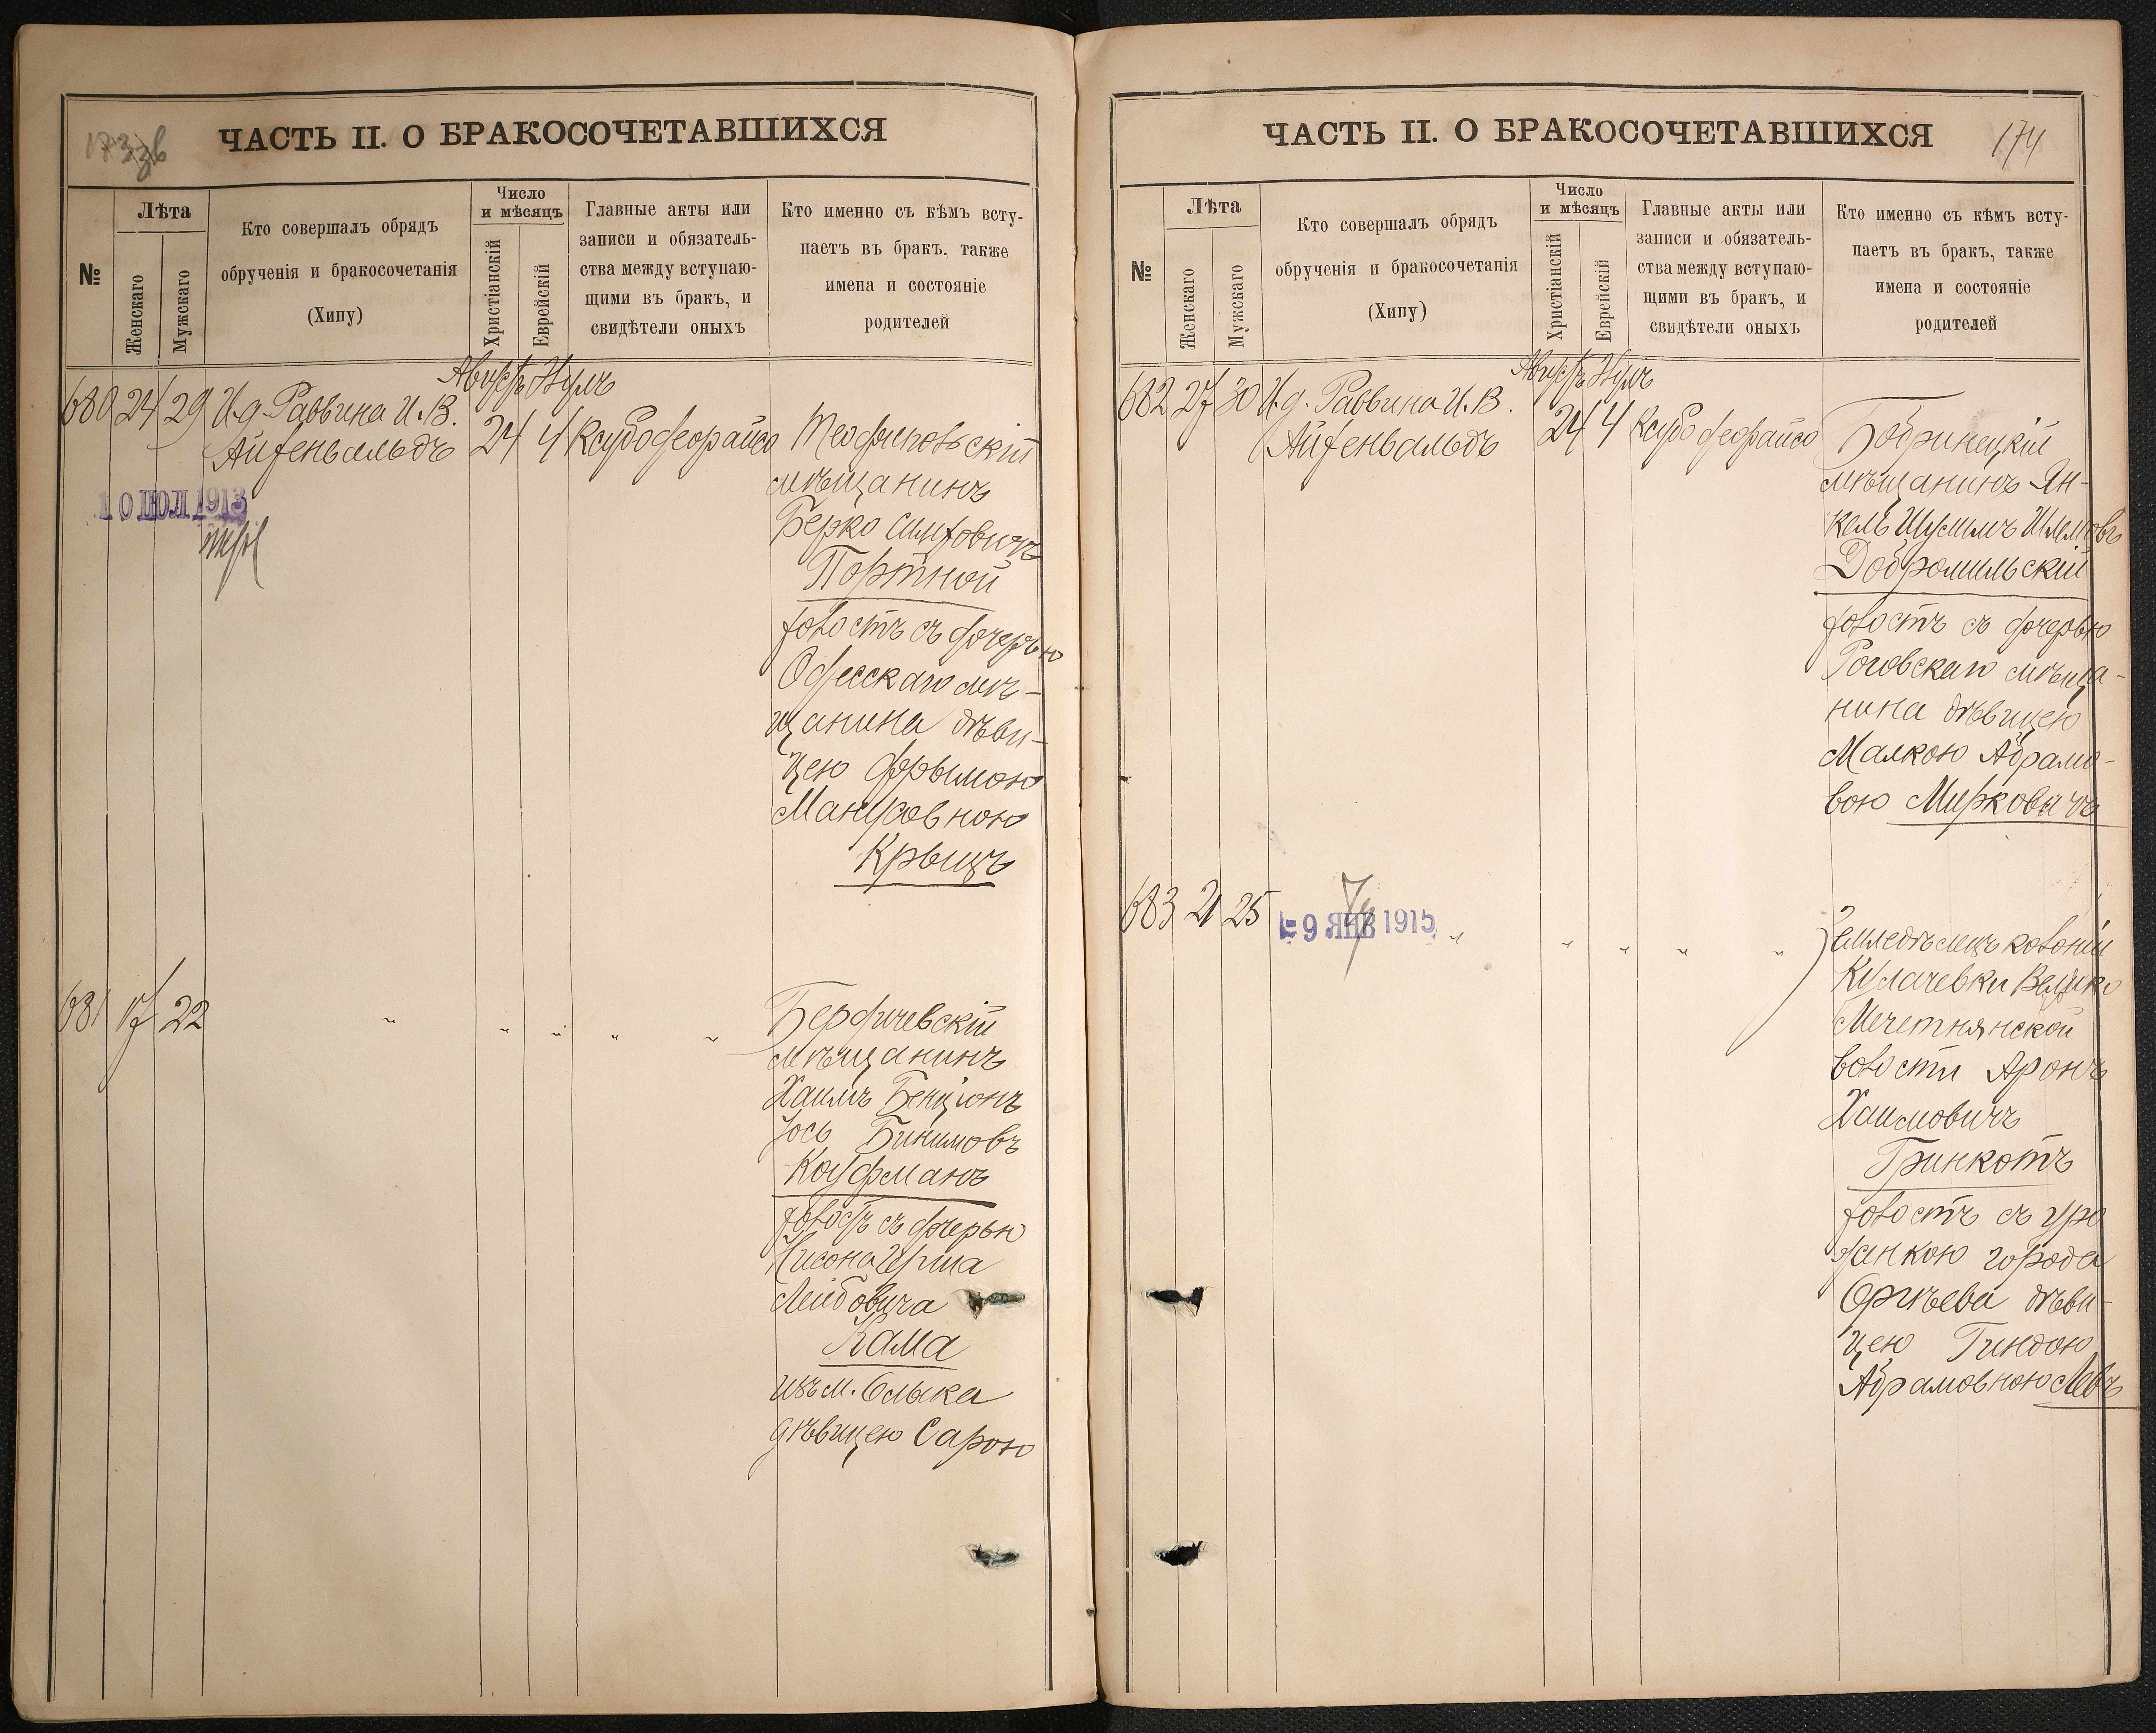 173 зв
ЧАСТЬ II. О БРАКОСОЧЕТАВШИХСЯ
№
Лѣта
Женскаго
Мужскаго
Кто совершалъ обрядъ
обрученія и бракосочетанія
(Хипу)
Число
и мѣсяцъ
Христіанскій
Еврейскій
Главные акты или
записи и обязатель-
ства между вступаю-
щими въ бракъ, и
свидѣтели оныхъ
Кто именно съ кѣмъ всту-
паетъ въ бракъ, также
имена и состояніе
родителей
680 24 29 И.д. Раввина И. В.
Айзенвальдъ
Августъ
24 4
10 ІЮЛ 1913
мѣщанинъ
Берко
Портной
холостъ съ дочерью
Одесскаго мѣ-
щанина дѣви-
цею Фрымою
Крыцъ
681 17 22 " " " " "
Бердичевскій
мѣщанинъ
Хаимъ Бенціонъ
Іось
Кауфманъ
холостъ съ дочерью
Лейбовича
Кама
изъ м. Олыка
дѣвицею Сарою
174
ЧАСТЬ II. О БРАКОСОЧЕТАВШИХСЯ
№
Лѣта
Женскаго
Мужскаго
Кто совершалъ обрядъ
обрученія и бракосочетанія
(Хипу)
Число
и мѣсяцъ
Христіанскій
Еврейскій
Главные акты или
записи и обязатель-
ства между вступаю-
щими въ бракъ, и
свидѣтели оныхъ
Кто именно съ кѣмъ всту-
паетъ въ бракъ, также
имена и состояніе
родителей
682 27 30 И.д. Раввина И. В.
Айзенвальдъ
Августъ
24 4
Бобринецкій
мѣщанинъ Ян-
кель
Добромильскій
холостъ съ дочерью
Роговскаго мѣща-
нина дѣвицею
Малкою Абрамо-
вою Мирковичъ
683 21 25 " " " " "
9 ЯНВ 1915
Земледѣлецъ колоніи
Кулачевки Велико
Мечетнянской
волости Аронъ
Хаимовичъ
Гринкотъ
холостъ съ уро
жанкою города
Оргѣева дѣви-
цею Гиндою
Абрамовною Левъ